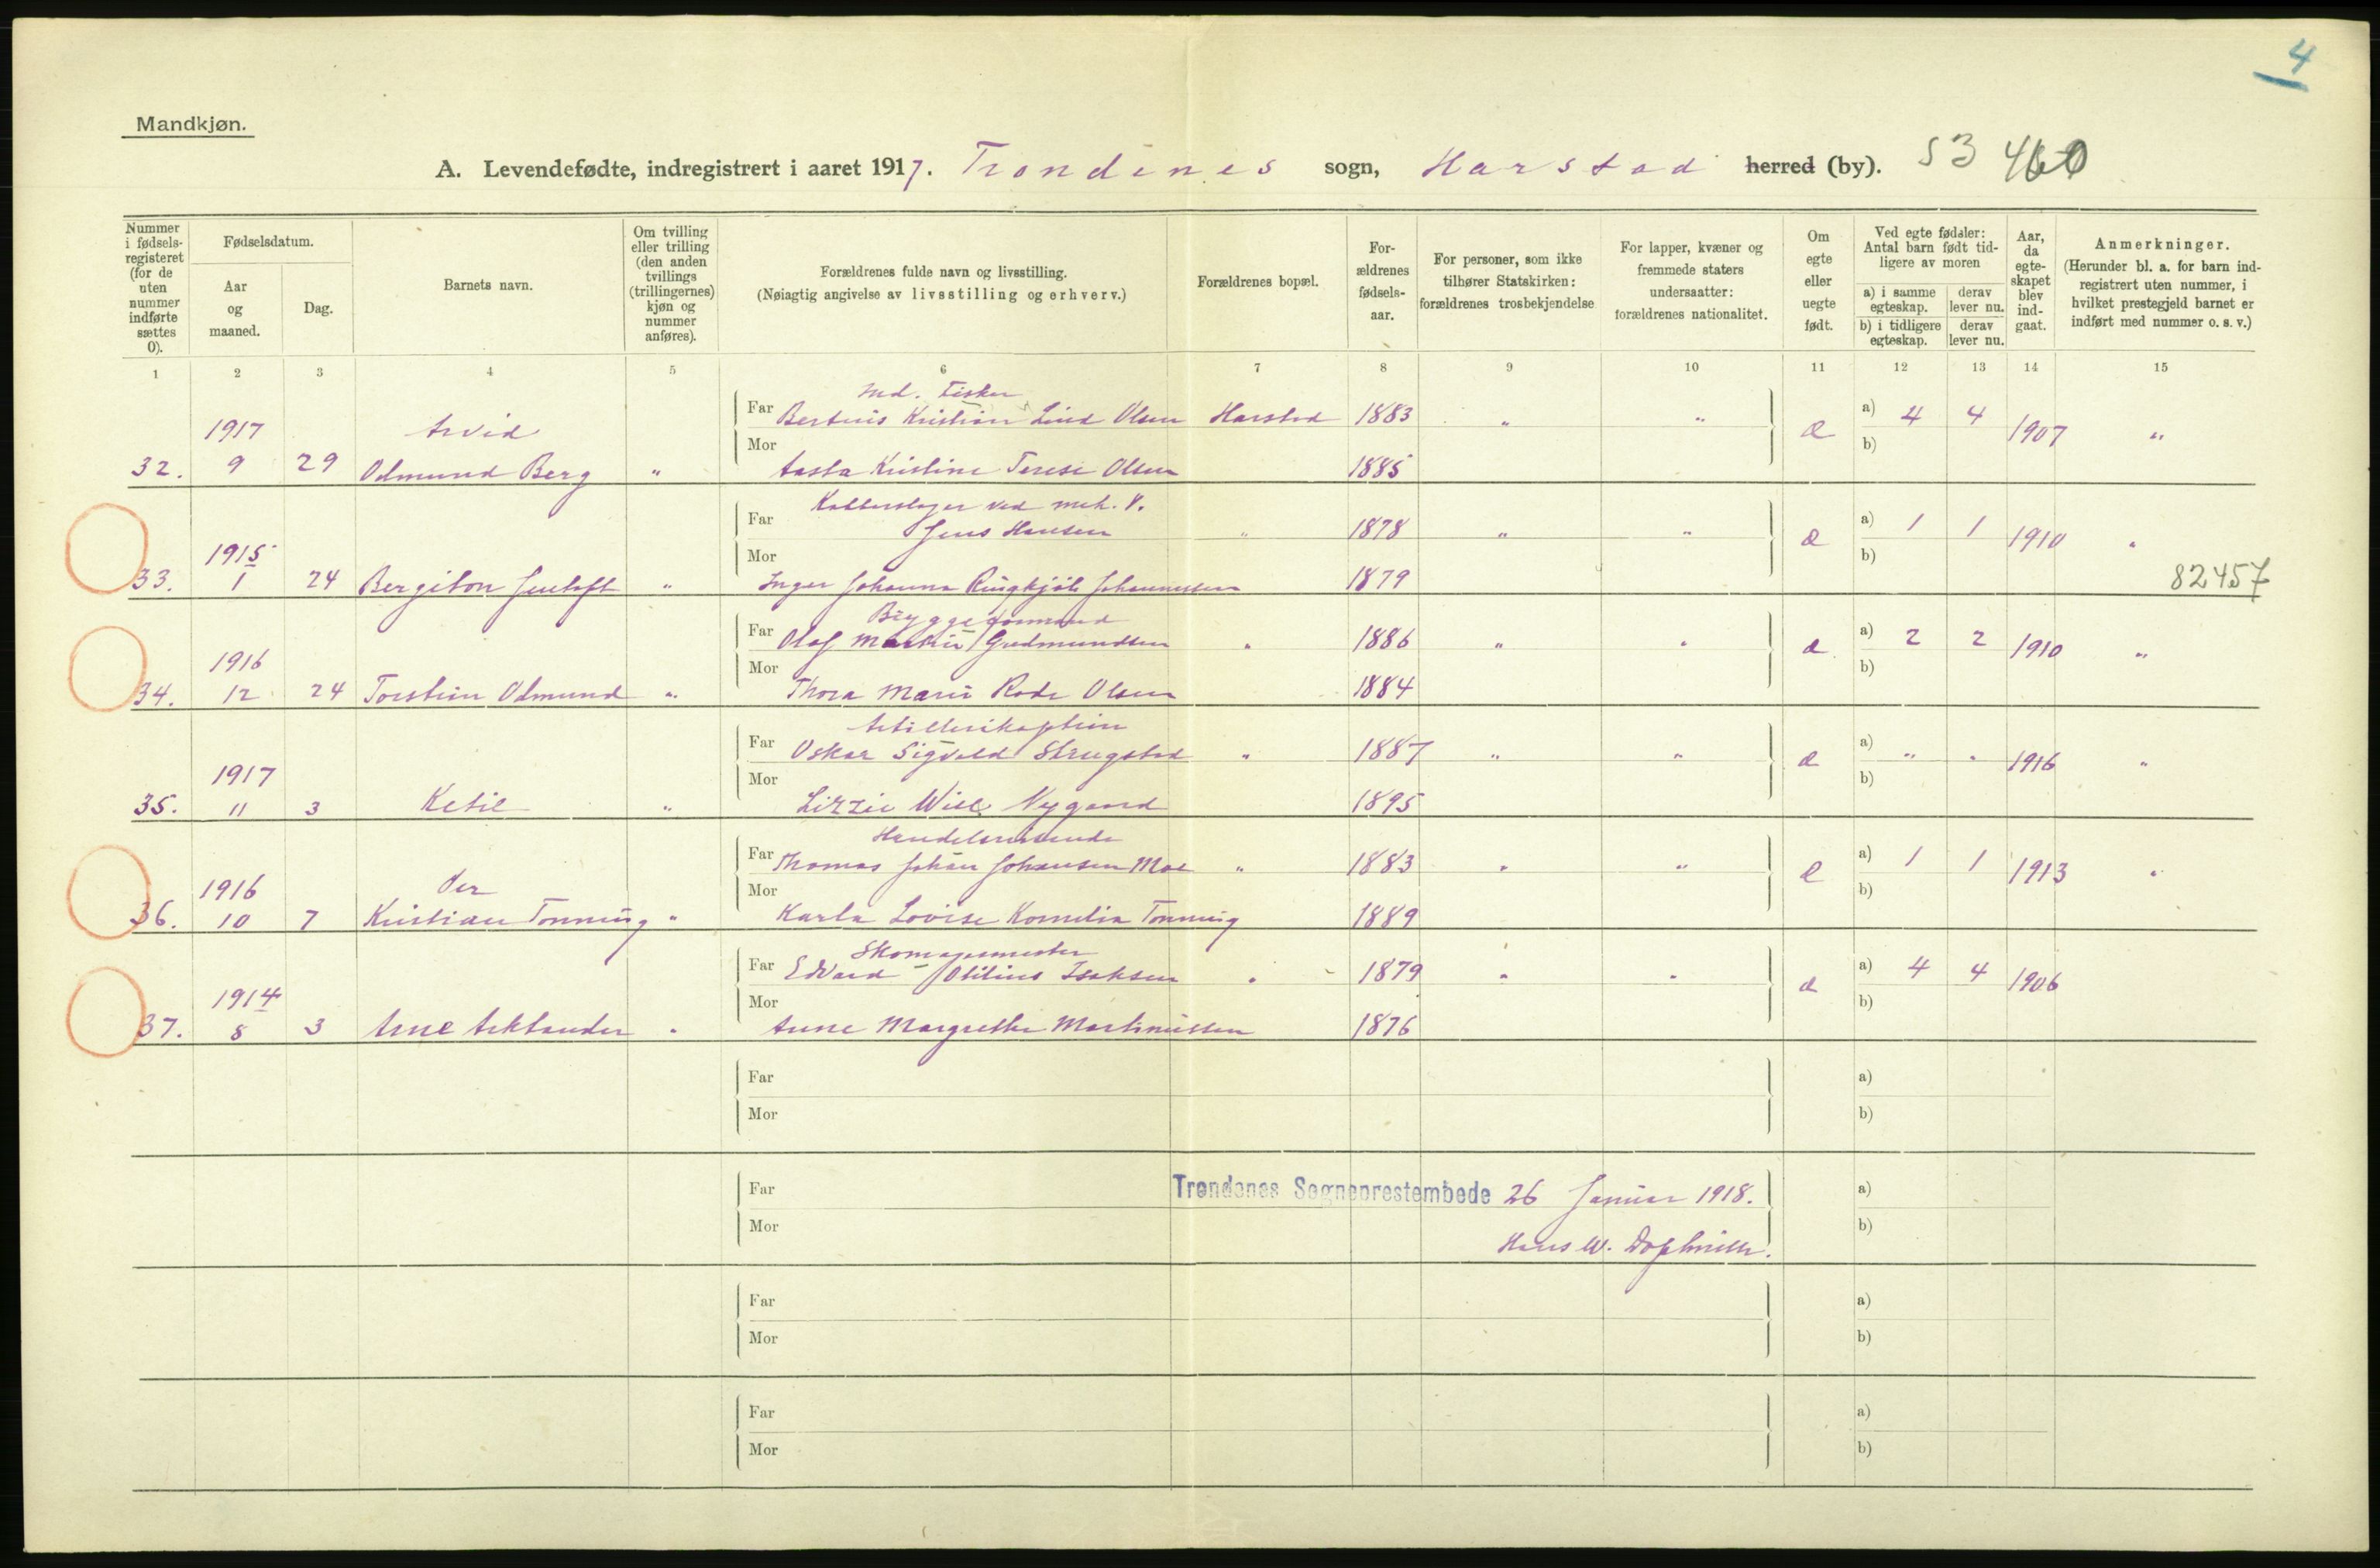 4
Mandkjøn.
A. Levendefødte, indregistrert i aaret 1917. Trondenes sogn, Harstad herred (by). 53 460
Nummer i fødselsregisteret (for de uten nummer indførte sættes 0).
Fødselsdatum.
Aar og maaned.
Dag.
Barnets navn.
Om tvilling eller trilling (den anden tvillings (trillingernes) kjøn og nummer anføres).
Forældrenes fulde navn og livsstilling.
(Nøiagtig angivelse av livsstilling og erhverv.)
Forældrenes bopæl.
Forældrenes fødselsaar.
For personer, som ikke tilhører Statskirken: forældrenes trosbekjendelse
For lapper, kvæner og fremmede staters undersaatter: forældrenes nationalitet.
Om egte eller uegte født.
Ved egte fødsler: Antal barn født tidligere av moren
a) i samme egteskap. derav lever nu.
b) i tidligere egteskap. derav lever nu.
Aar, da egteskapet blev indgaat.
Anmerkninger.
(Herunder bl. a. for barn indregistrert uten nummer, i hvilket prestegjeld barnet er indført med nummer o. s. v.)
1 2 3 4 5 6 7 8 9 10 11 12 13 14 15
Fisker
1917 Arvid Far Bertinis Kristian Lind Olsen Harstad 1883 " " a) 4 4 1907 "
32. 9 29 Odmund Berg " Mor Aasta Kristine Terese Olsen 1885 b)
Kobberslager ved mek. V.
1915 Far Jens Hansen " 1878 " " a) 1 1 1910 "
33. 1 24 Bergiton Jentoft " Mor Inger Johanna Ringkjøb Johannessen 1879 b) 82457
Bryggeformand
1916 Far Olaf Martin Gudmundsen " 1886 " " a) 2 2 1910 "
34. 12 24 Torstein Odmund " Mor Thora Marie Rode Olsen 1884 b)
Artillerikaptein
1917 Far Oskar Sigvald Strugstad " 1887 " " a) " " 1916 "
35. 11 3 Ketil " Mor Lizzie Wise Nygaard 1895 b)
Handelsreisende
1916 Per Far Thomas Johan Johansen Moe " 1883 " " a) 1 1 1913 "
36. 10 7 Kristian Tonning " Mor Karla Lovise Kornelia Tonning 1889 b)
Skomagermester
1914 Far Edvard Otilius Isaksen " 1879 " " a) 4 4 1906
37. 8 3 Arne " Mor Anne Margrethe Martinussen 1876 b)
Far a)
Mor b)
Far Trondenes Sogneprestembede 26 Januar 1918. a)
Mor Hans W. b)
Far a)
Mor b)
Far a)
Mor b)